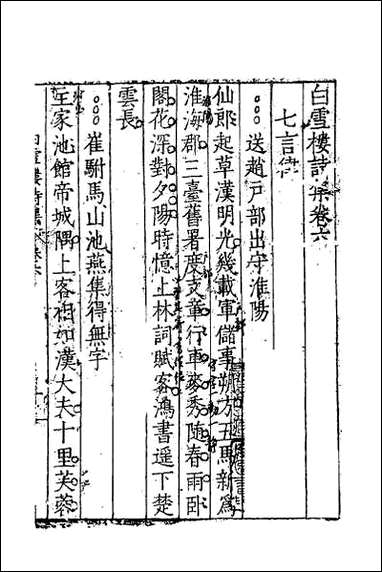 白雪樓詩集卷六
七言律
送趙戶部出守淮陽
仙郎起草漢明光幾載軍儲事朔方五馬新爲
淮海郡三臺舊署度支章行車麥秀隨春雨卧
閣花深對夕陽時憶上林詞賦客鴻書遥下楚
雲長
崔駙馬山池燕集得無字
王家池館帝城隅上客相如漢大夫十里芙蓉